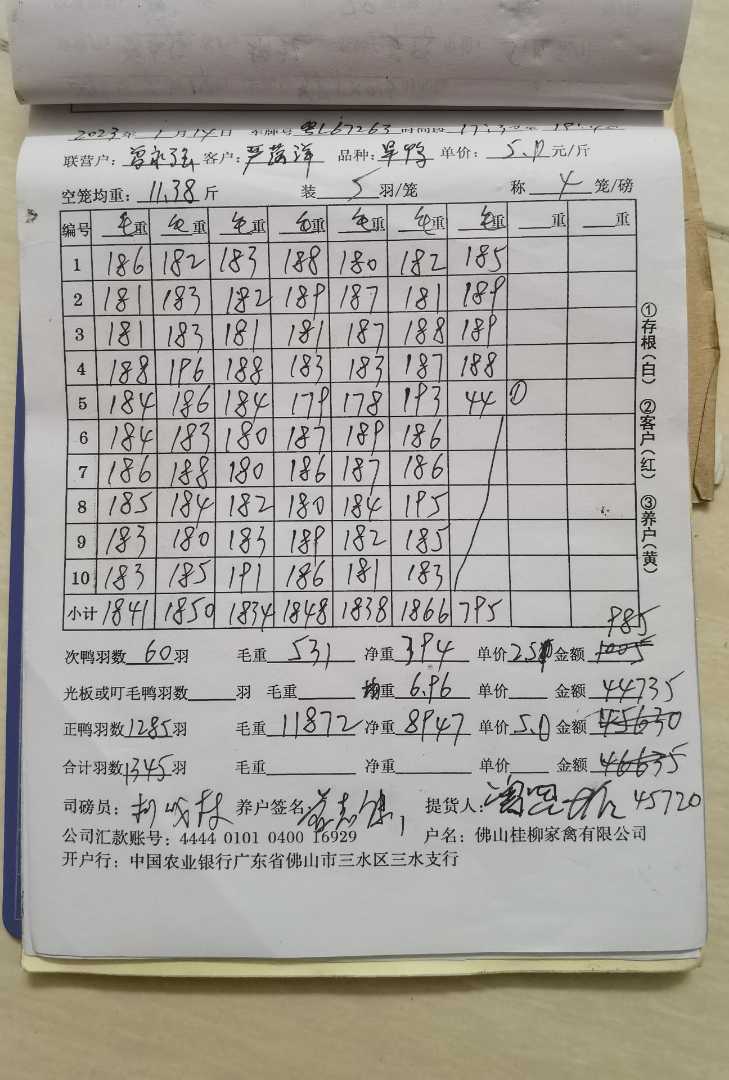 2023年 1月14日 车牌号 粤L67263 时间段
联营户： 客户：严 品种：旱鸭 单价：5.0元/斤
空笼均重：11.38斤 装 5 羽/笼 称 4 笼/磅
编号 毛重 毛重 毛重 毛重 毛重 毛重 毛重 重 重
1 186 182 183 188 180 182 185
2 181 183 182 189 187 181 189
3 181 183 181 181 187 188 189
4 188 196 188 183 183 187 188
5 184 186 184 179 178 193 44 ①
6 184 183 180 187 189 186
7 186 188 180 186 187 186
8 185 184 182 180 184 195
9 183 180 183 189 182 185
10 183 185 191 186 181 183
小计 1841 1850 1834 1848 1838 1866 795
①存根（白） ②客户（红） ③养户（黄）
985
次鸭羽数 60 羽 毛重 531 净重 394 单价 2.5 金额 1005
光板或叮毛鸭羽数 羽 毛重 均重 6.96 单价 金额 44735
正鸭羽数 1285 羽 毛重 11872 净重 8947 单价 5.0 金额 45630
合计羽数 1345 羽 毛重 净重 单价 金额 46635
司磅员： 养户签名 提货人： 45720
公司汇款账号：4444 0101 0400 16929 户名：佛山桂柳家禽有限公司
开户行：中国农业银行广东省佛山市三水区三水支行